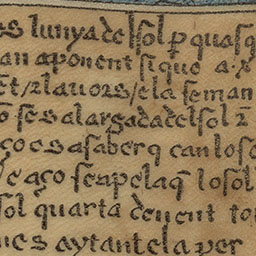 es lunya del sol ꝑ quasq
an aponent si que a·x
Et /z lauors / ela seman
o ses alargada del sol z̄
ço es asaber q can lo so
/e aço se apela q̄ lo sol
sol quarta deuent to
ues aytant ela per